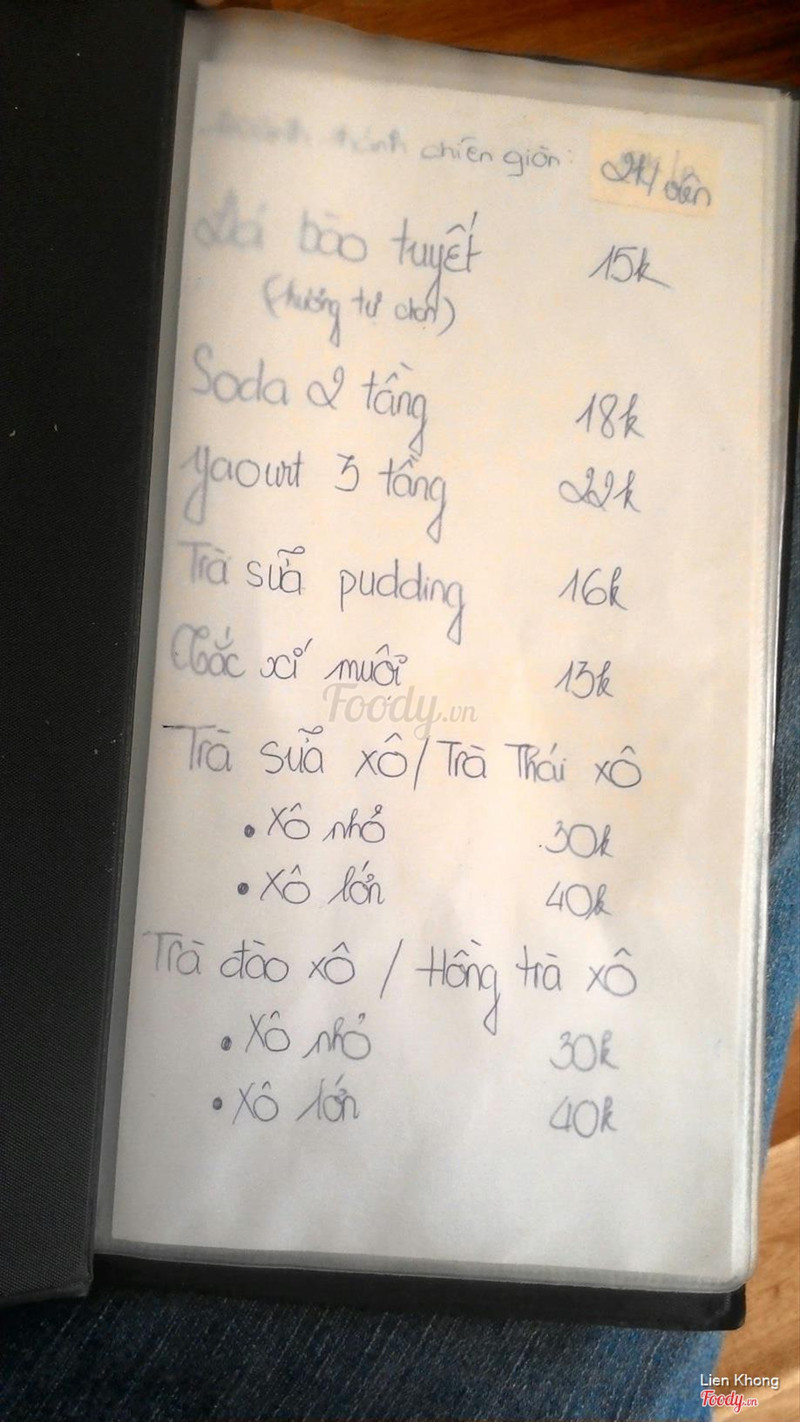 thánh chiên giòn: 2k/viên
Đá bào tuyết 15k
(hương tự chọn)
Soda 2 tầng 18k
Yaourt 3 tầng 22k
Trà sữa pudding 16k
Tắc xí muội 13k
Foody.vn
Trà sữa xô / Trà Thái xô
• Xô nhỏ 30k
• Xô lớn 40k
Trà đào xô / Hồng trà xô
• Xô nhỏ 30k
• Xô lớn 40k
Lien Khong
Foody.vn